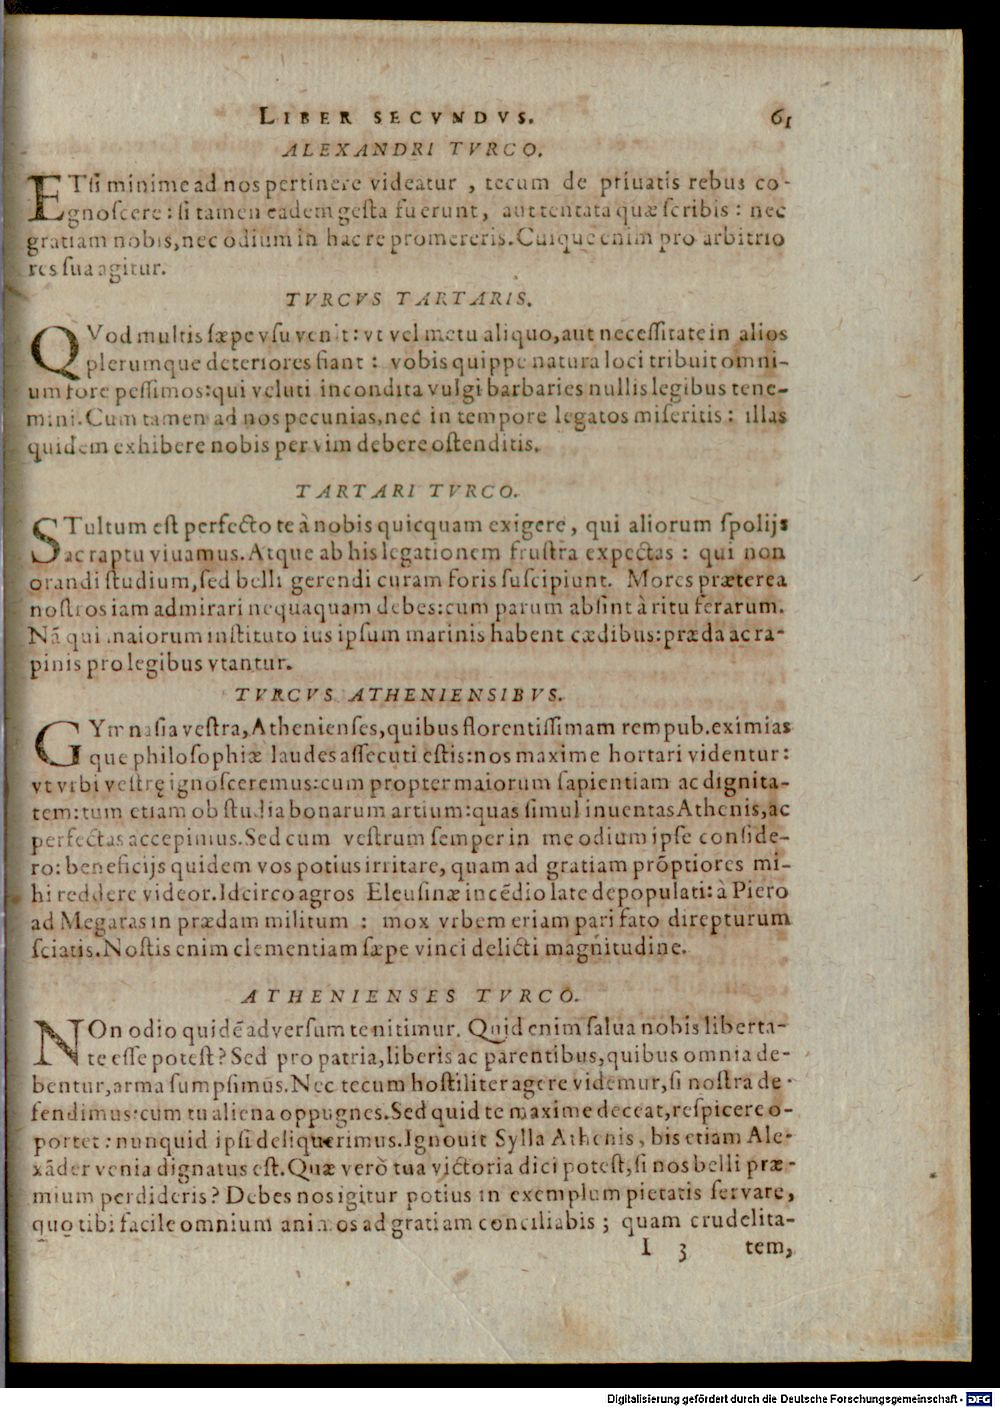 LIBER SECVNDVS. 61
ALEXANDRI TVRCO.
ETſi minime ad nos pertinere videatur , tecum de priuatis rebus co-
gnoſcere: ſi tamen eadem geſta fuerunt, aut tentata quæ ſcribis: nec
gratiam nobis, nec odium in hac re promereris. Cuique enim pro arbitrio
res ſua agitur.
TVRCVS TARTARIS.
QVod multis ſæpe vſu venit: vt vel metu aliquo, aut neceſſitate in alios
plerumque deteriores fiant: vobis quippe natura loci tribuit omni-
um fore peſſimos: qui veluti incondita vulgi barbaries nullis legibus tene-
mini. Cum tamen ad nos pecunias, nec in tempore legatos miſeritis: illas
quidem exhibere nobis per vim debere oſtenditis.
TARTARI TVRCO.
STultum eſt perfecto te à nobis quicquam exigere, qui aliorum ſpolijs
ac raptu viuamus. Atque ab his legationem fruſtra expectas: qui non
orandi ſtudium, ſed belli gerendi curam foris ſuſcipiunt. Mores præterea
noſtros iam admirari nequaquam debes: cum parum abſint à ritu ferarum.
Nā qui maiorum inſtituto ius ipſum marinis habent cædibus: præda ac ra-
pinis pro legibus vtantur.
TVRCVS ATHENIENSIBVS.
GYmnaſia veſtra, Athenienſes, quibus florentiſſimam rempub. eximias
que philoſophiæ laudes aſſecuti eſtis: nos maxime hortari videntur:
vt vrbi veſtrę ignoſceremus: cum propter maiorum ſapientiam ac dignita-
tem: tum etiam ob ſtudia bonarum artium: quas ſimul inuentas Athenis, ac
perfectas accepimus. Sed cum veſtrum ſemper in me odium ipſe conſide-
ro: beneficijs quidem vos potius irritare, quam ad gratiam prōptiores mi-
hi reddere videor. Idcirco agros Eleuſinæ incēdio late depopulati: à Piero
ad Megaras in prædam militum : mox vrbem eriam pari fato direpturum
ſciatis. Noſtis enim clementiam ſæpe vinci delicti magnitudine.
ATHENIENSES TVRCO.
NOn odio quidē adverſum te nitimur. Quid enim ſalua nobis liberta-
te eſſe poteſt? Sed pro patria, liberis ac parentibus, quibus omnia de-
bentur, arma ſumpſimus. Nec tecum hoſtiliter agere videmur, ſi noſtra de-
fendimus: cum tu aliena oppugnes. Sed quid te maxime deceat, reſpicere o-
portet: nunquid ipſi deliquerimus. Ignouit Sylla Athenis, bis etiam Ale-
xāder venia dignatus eſt. Quæ verò tua victoria dici poteſt, ſi nos belli præ-
mium perdideris? Debes nos igitur potius in exemplum pietatis ſervare,
quo tibi facile omnium animos ad gratiam conciliabis; quam crudelita-
I 3 tem,
Digitalisierung gefördert durch die Deutsche Forschungsgemeinschaft - DFG